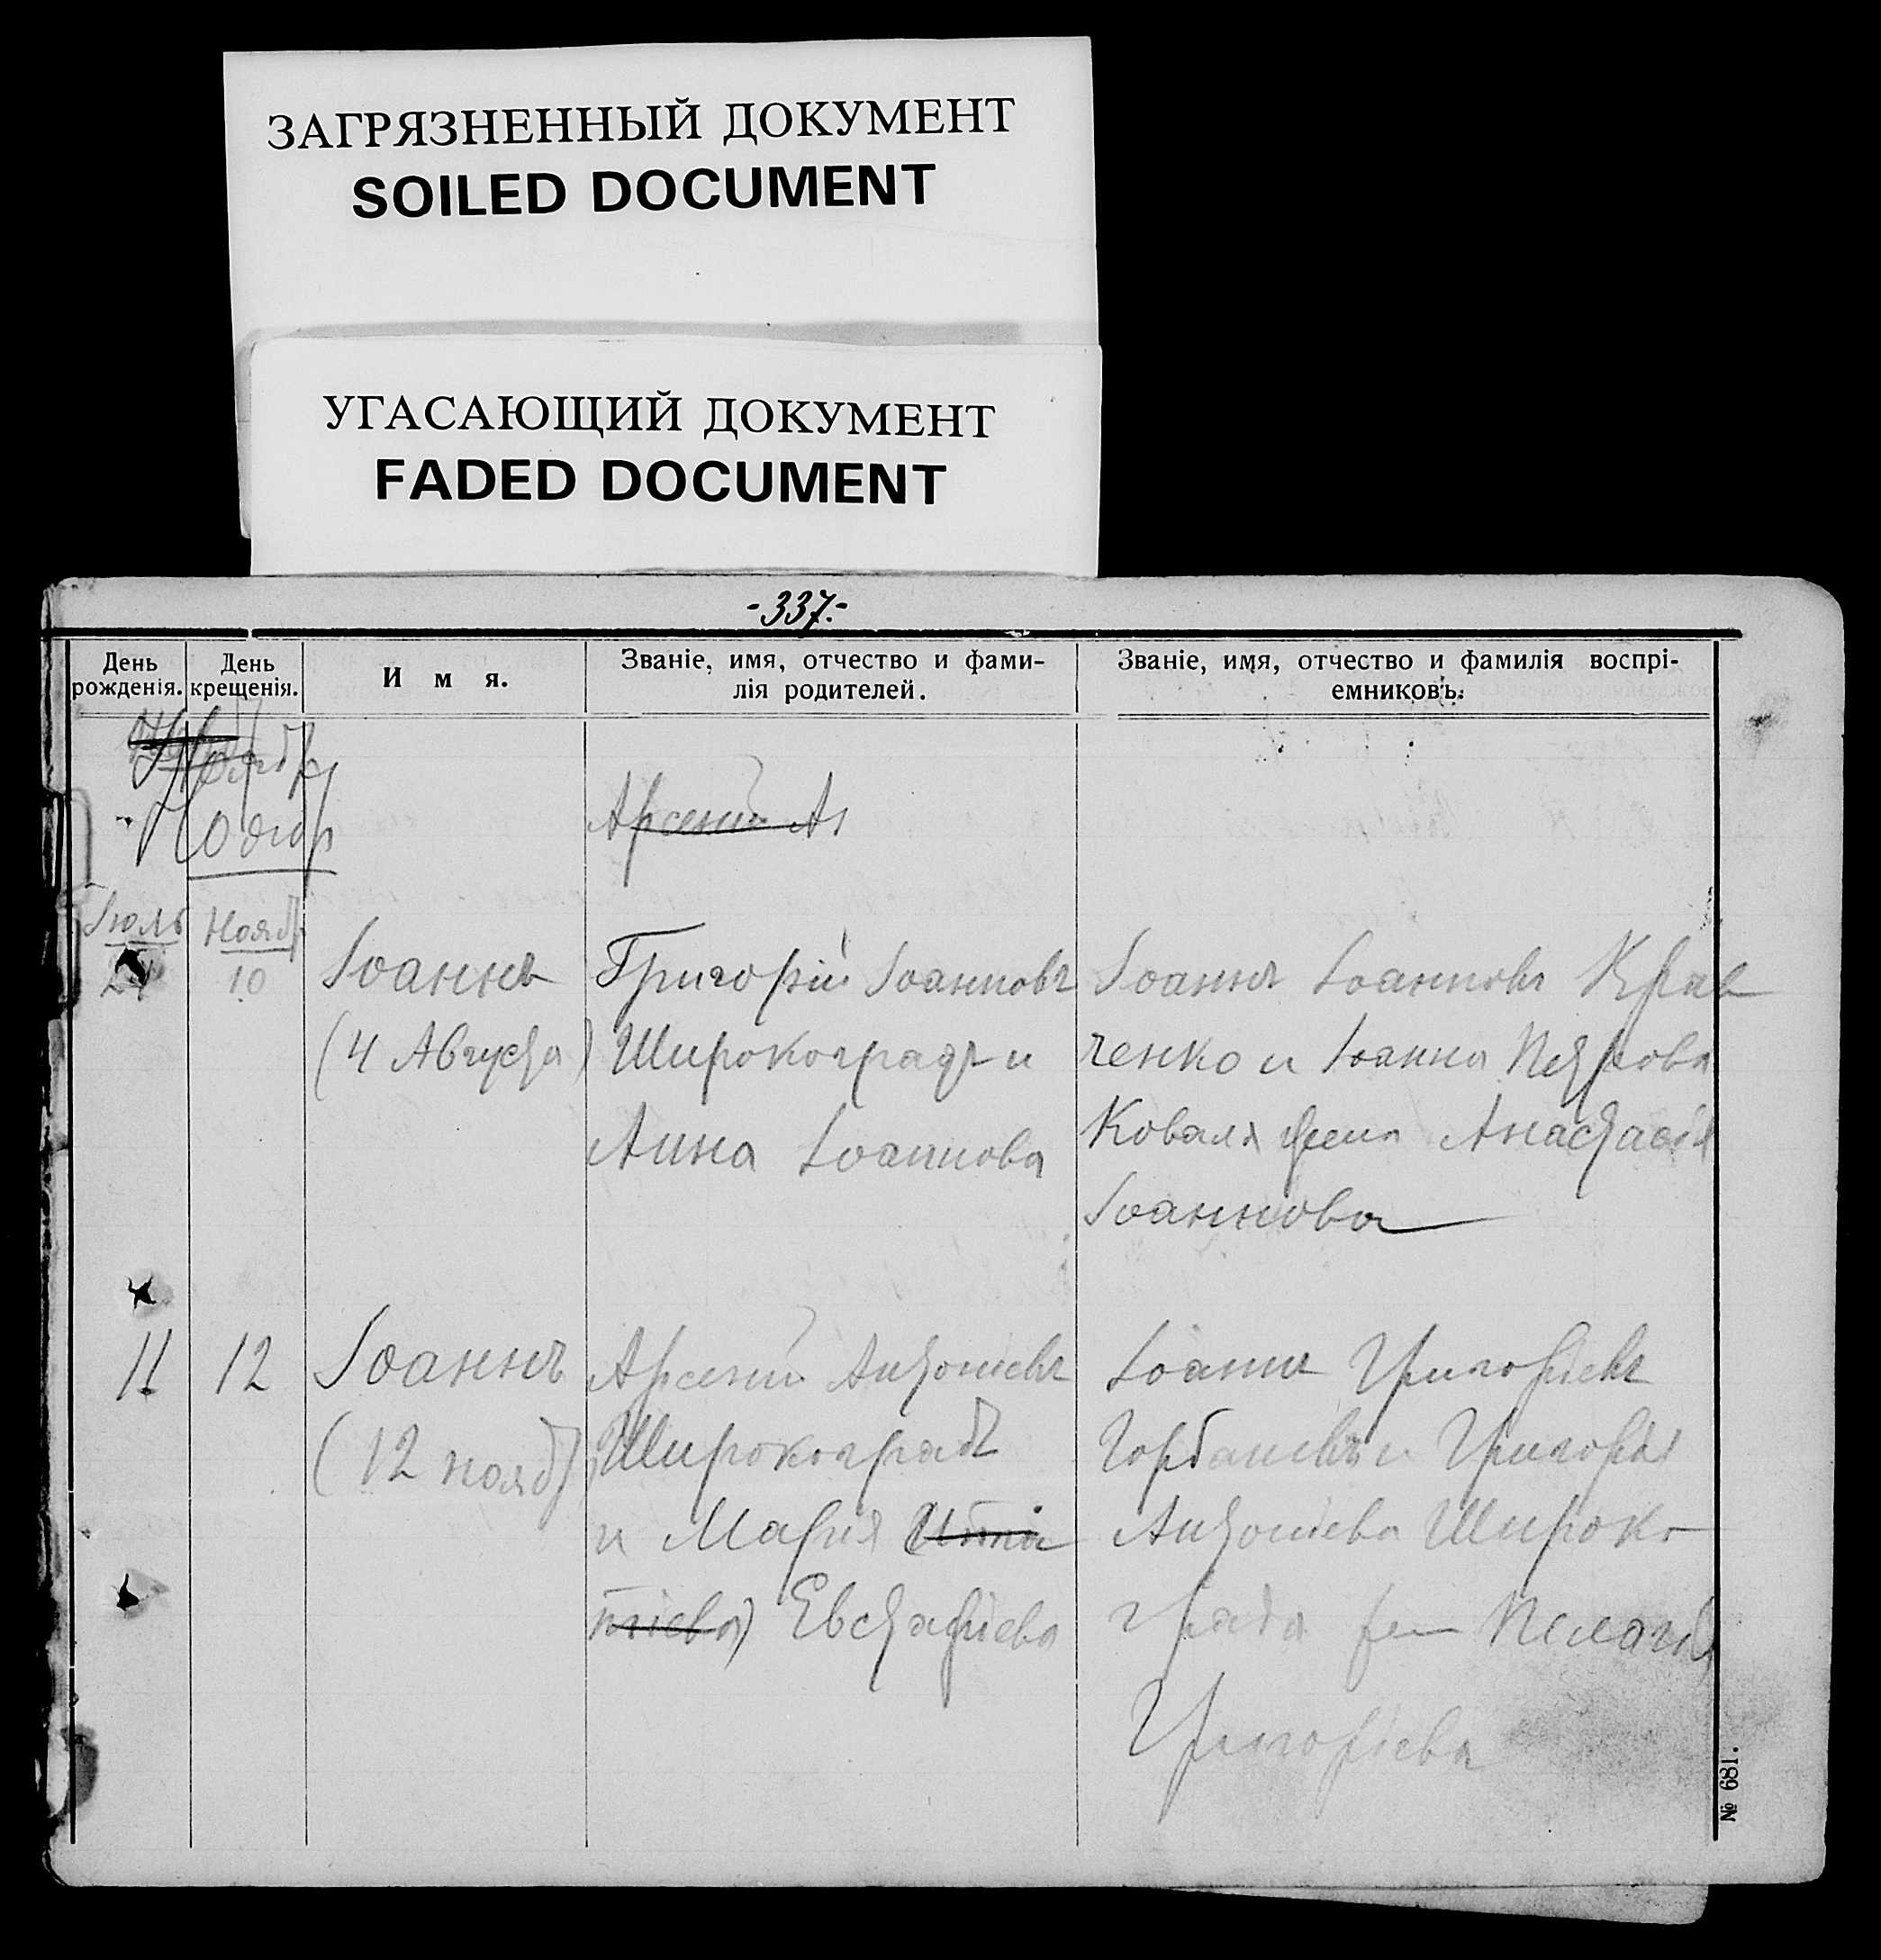 ЗАГРЯЗНЕННЫЙ ДОКУМЕНТ
SOILED DOCUMENT
УГАСАЮЩИЙ ДОКУМЕНТ
FADED DOCUMENT
-337.-
День рожденія.
День крещенія.
И м я.
Званіе, имя, отчество и фами-
лія родителей.
Званіе, имя, отчество и фамилія воспрі-
емниковъ.
Ноябр
Арсеній Ан
Іюль
Ноябр
10
Іоаннъ
(4 Августа)
Григорій Іоанновъ
Широкоградъ и
Анна Іоаннова
Іоаннъ Іоанновъ Крав
ченко и Іоанна Петрова
Коваля жена Анастасія
Іоаннова
11
12
Іоаннъ
(12 нояб)
Арсеній Антоніевъ
Широкоградъ
и Марія (Игна
тіева) Евстафіева
Іоаннъ Григоріевъ
и Григорія
Антоніева Широко
града жена Пелагія
Григоріева
№ 681.